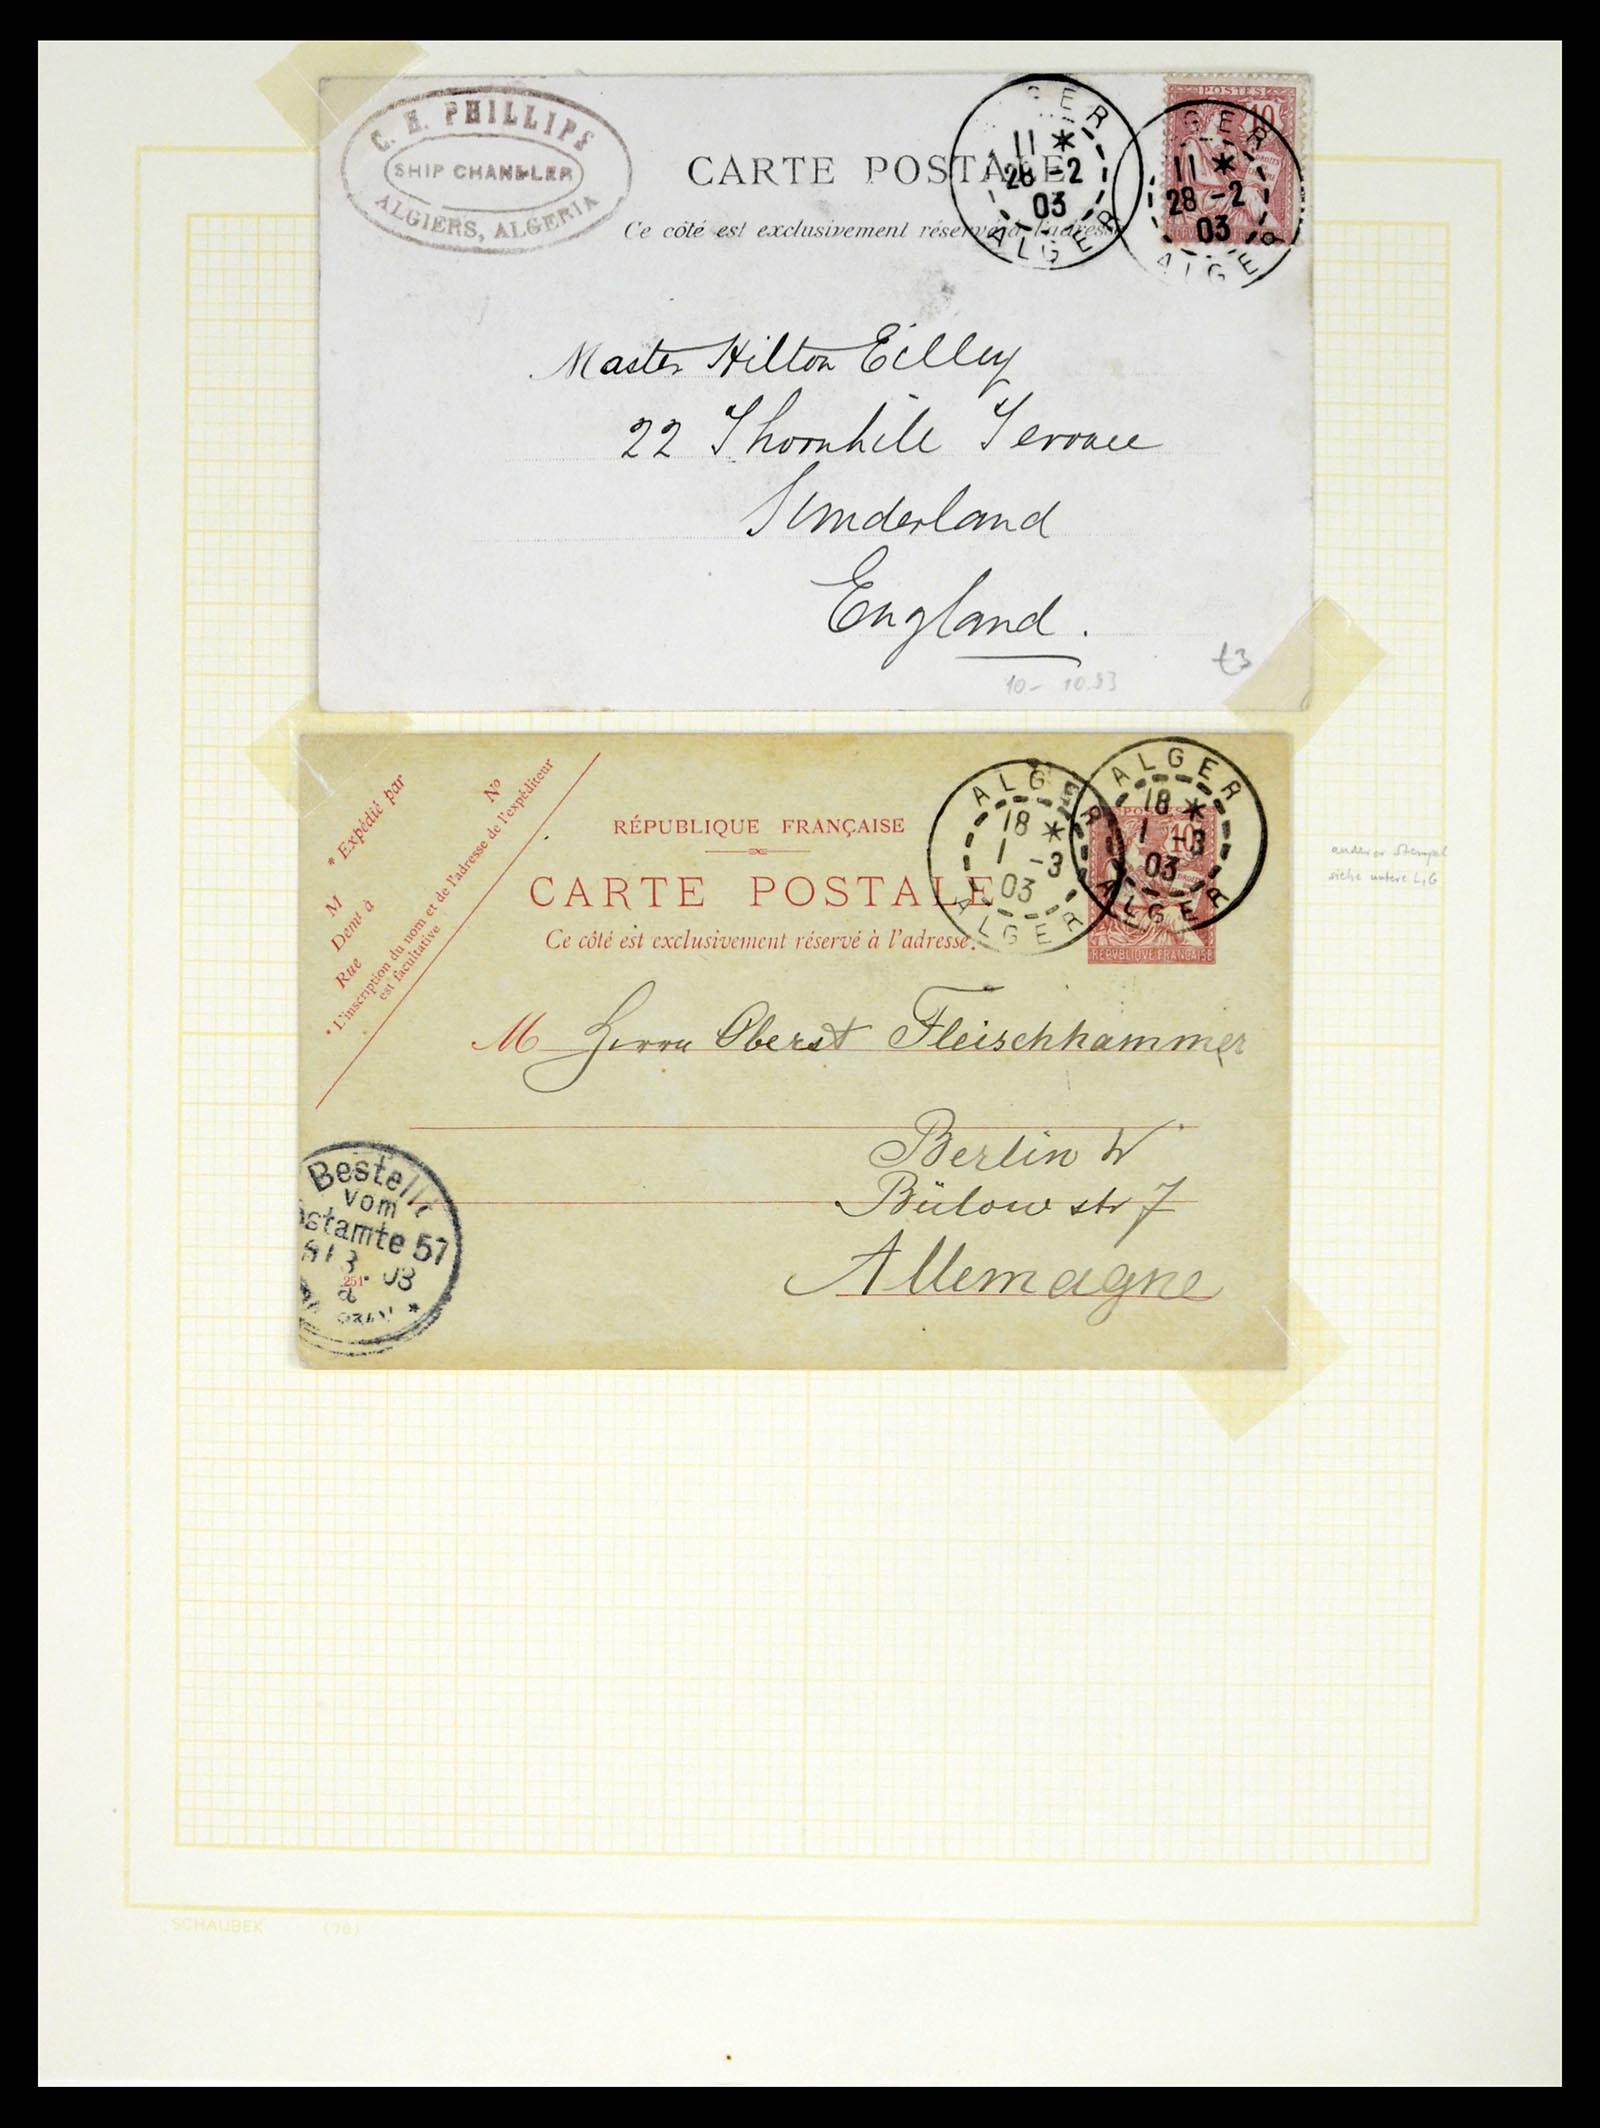 C. H. PHILLIPS
SHIP CHANDLER
ALGIERS, ALGERIA
CARTE POSTALE
Ce côté est exclusivement réservé à l'adresse
GER
11 *
28 -2
03
ALGER
POSTES
10
GER
11 *
28 -2
03
ALGER
Master Hilton Eilley
22 Thornhill Terrace
Sunderland
England.
£3
10- 10.93
* Expédié par
M
Demt à
Rue
No
* L'inscription du nom et de l'adresse de l'expéditeur
est facultative
RÉPUBLIQUE FRANÇAISE
CARTE POSTALE
Ce côté est exclusivement réservé à l'adresse.
ALGER
18 *
1 -3
03
ALGER
ALGER
18 *
1 -3
03
ALGER
POSTES
10
REPUBLIQUE FRANÇAISE
anderer Stempel
siehe untere L,G
M Herrn Oberst Fleischhammer
Berlin W
Bülow str 7
Allemagne
Bestellt
vom
ostamte 57
3 03
251
SCHAUBEK (70)